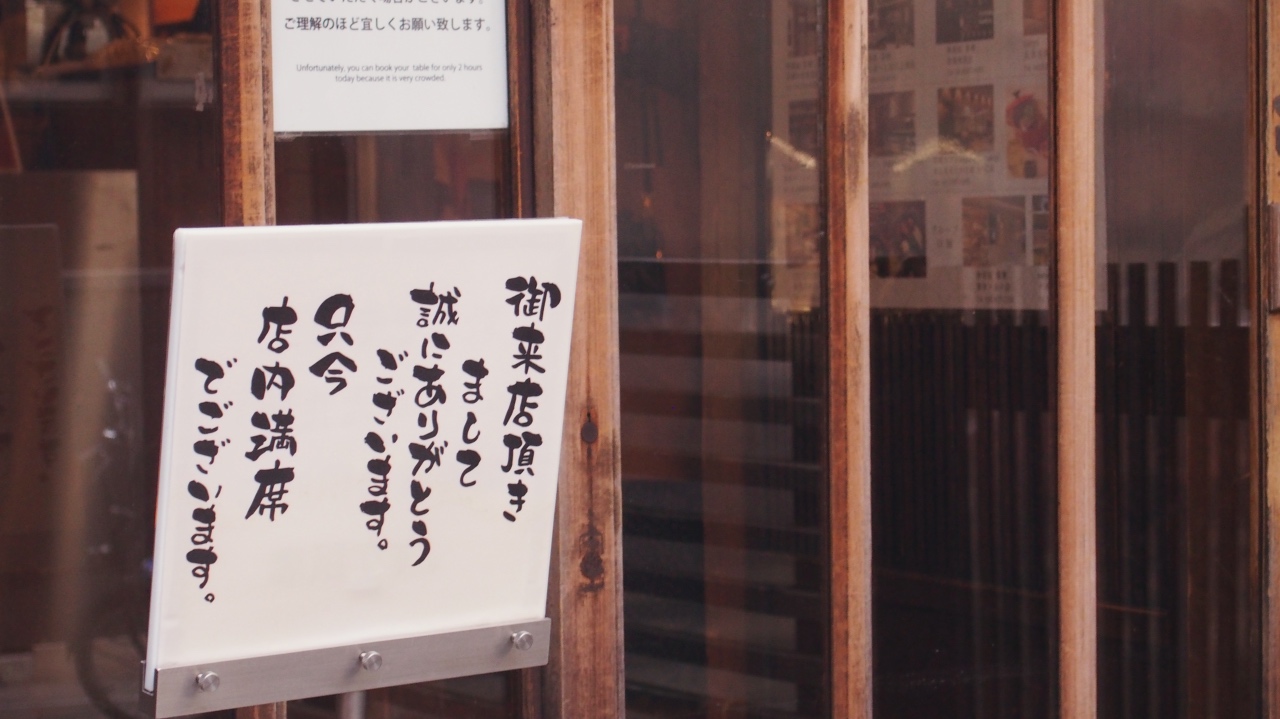 ご理解のほど宜しくお願い致します。
Unfortunately, you can book your table for only 2 hours
today because it is very crowded.
御来店頂き
まして
誠にありがとう
ございます。
只今
店内満席
でございます。